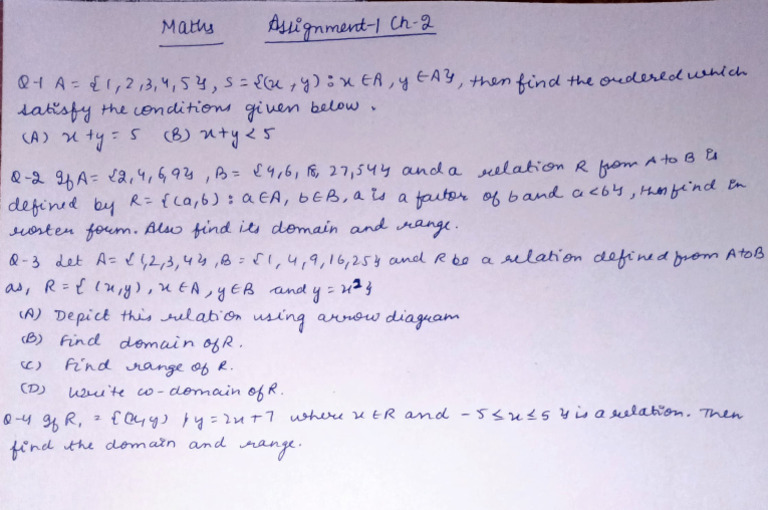 Maths Assignment-1 Ch-2
Q-1 A = {1,2,3,4,5}, S = {(x,y) : x ∈ A, y ∈ A}, then find the ordered which
satisfy the conditions given below.
(A) x+y = 5 (B) x+y < 5
Q-2 If A = {2,4,6,9}, B = {4,6,18,27,54} and a relation R from A to B is
defined by R = {(a,b) : a∈A, b∈B, a is a factor of b and a<b}, then find in
roster form. Also find its domain and range.
Q-3 Let A = {1,2,3,4}, B = {1,4,9,16,25} and R be a relation defined from A to B
as, R = {(x,y), x∈A, y∈B and y = x²}
(A) Depict this relation using arrow diagram
(B) Find domain of R.
(C) Find range of R.
(D) Write co-domain of R.
Q-4 If R, = {(x,y) / y = 2x+7 where x∈R and -5≤x≤5} is a relation. Then
find the domain and range.